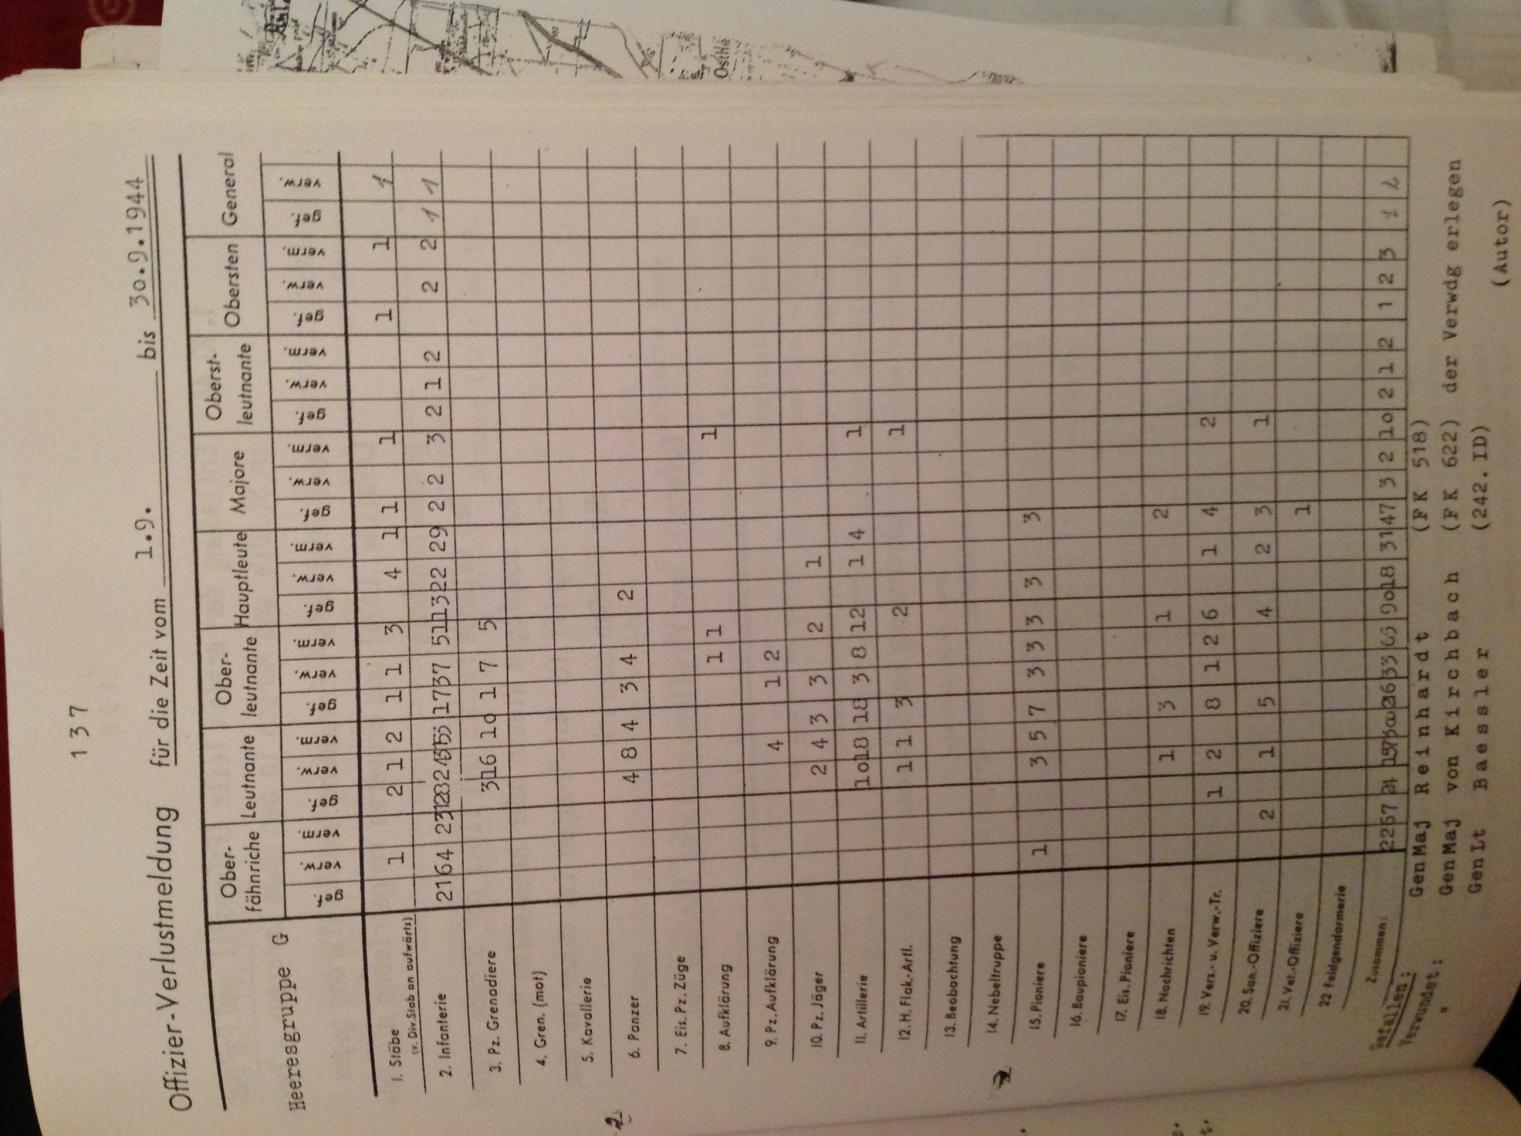 137
Offizier-Verlustmeldung für die Zeit vom 1.9. bis 30.9.1944
Heeresgruppe G
Ober-fähnriche Leutnante Ober-leutnante Hauptleute Majore Oberst-leutnante Obersten General
gef. verw. verm. gef. verw. verm. gef. verw. verm. gef. verw. verm. gef. verw. verm. gef. verw. verm. gef. verw. verm. gef. verw.
1. Stäbe (v. Div. Stab an aufwärts) 1 2 1 2 1 1 3 4 1 1 1 1 1 1
2. Infanterie 2 2 29 2 2 3 2 1 2 2 2 1 1
3. Pz. Grenadiere 3 16 10 1 7 5
4. Gren. (mot)
5. Kavallerie
6. Panzer 4 8 4 3 4 2
7. Eis. Pz. Züge
8. Aufklärung 1 1 1
9. Pz. Aufklärung 4 1 2
10. Pz. Jäger 2 4 3 3 2 1
11. Artillerie 10 18 18 3 8 12 1 4 1
12. H. Flak-Artl. 1 1 3 2 1
13. Beobachtung
14. Nebeltruppe
15. Pioniere 1 3 5 7 3 3 3 3 3
16. Baupioniere
17. Eis. Pioniere
18. Nachrichten 1 3 1 2
19. Vers.- u. Verw.-Tr. 1 2 8 1 2 6 1 4 2
20. San.-Offiziere 2 1 5 4 2 3 1
21. Vet.-Offiziere 1
22 Feldgendarmerie
Zusammen: 33 65 90 18 31 47 3 2 10 2 1 2 1 2 3
Gefallen: GenMaj Reinhardt (FK 518)
Verwundet: GenMaj von Kirchbach (FK 622) der Verwdg erlegen
" GenLt Baessler (242. ID) (Autor)